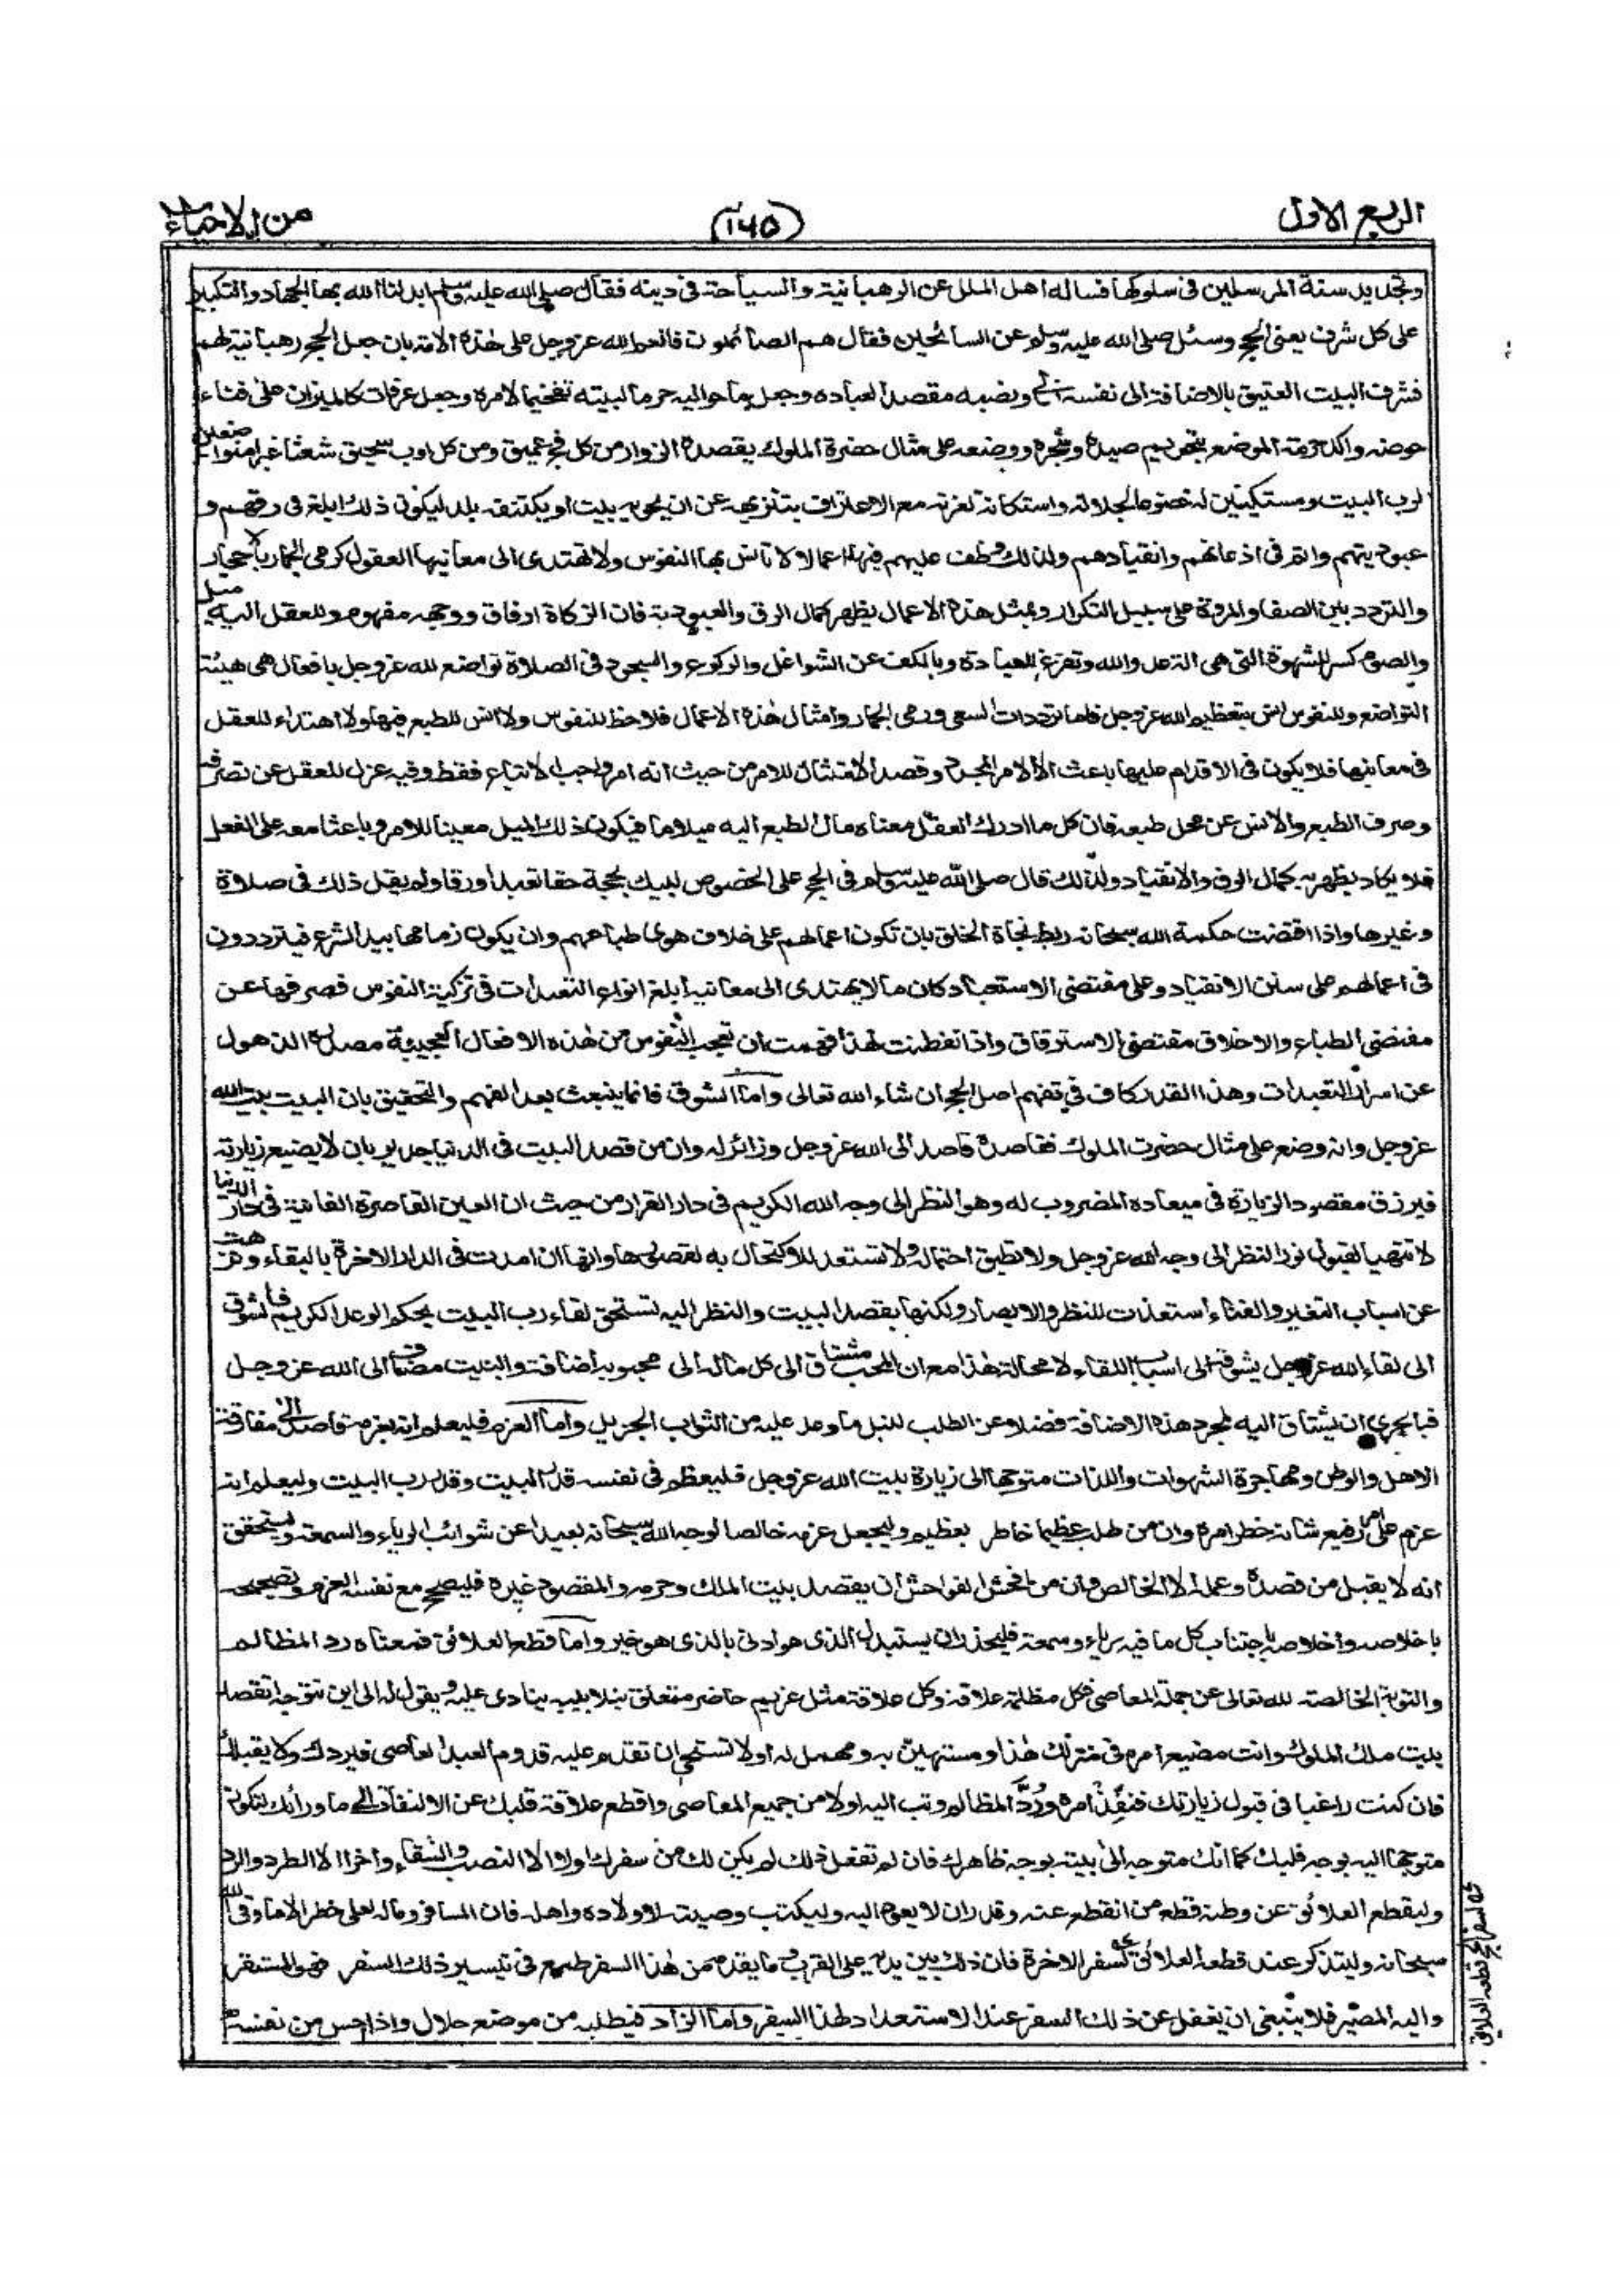 الربع الاول
(۱۴۵)
من الاحياء
وتجديد سنة المرسلين فى سلوكها فساله اهل الملل عن الرهبانية والسياحة فى دينه فقال صلى الله عليه وسلم ابدلنا الله بها الجهاد والتكبير
على كل شرف يعنى الحج وسئل صلى الله عليه وسلم عن السائحين فقال هم الصائمون فانعم الله عز وجل على هذه الامة بان جعل الحج رهبانية لهم
فشرف البيت العتيق بالاضافة الى نفسه ونصبه مقصدا لعباده وجعل ما حواليه حرما لبيته تفخيما لامره وجعل عرفات كالميزان على فناء
حوضه واكد حرمة الموضع بتحريم صيده وشجره ووضعه على مثال حضرة الملوك يقصده الزوار من كل فج عميق ومن كل اوب سحيق شعثا غبرا متواضعين
لرب البيت ومستكينين له خضوعا لجلاله واستكانة لعزته مع الاعتراف بتنزيهه عن ان يحويه بيت او يكتنفه بلد ليكون ذلك ابلغ فى رقهم و
عبوديتهم واتم فى اذعانهم وانقيادهم ولذلك وظف عليهم فيها اعمالا لا تانس بها النفوس ولا تهتدى الى معانيها العقول كرمى الجمار بالاحجار
والتردد بين الصفا والمروة على سبيل التكرار وبمثل هذه الاعمال يظهر كمال الرق والعبودية فان الزكاة ارفاق ووجهه مفهوم وللعقل اليه ميل
والصوم كسر للشهوة التى هى عدو الله وتفرغ للعبادة وبالكف عن الشواغل والركوع والسجود فى الصلاة تواضع لله عز وجل بافعال هى هيئة
التواضع وللنفوس انس بتعظيم الله عز وجل فاما ترددات السعى ورمى الجمار وامثال هذه الاعمال فلا حظ للنفوس ولا انس للطبع فيها ولا اهتداء للعقل
فى معانيها فلا يكون فى الاقدام عليها باعث الا الامر المجرد وقصد الامتثال للامر من حيث انه امر واجب الاتباع فقط وفيه عزل للعقل عن تصرفه
وصرف الطبع والانس عن محل طبعه فان كل ما ادرك العقل معناه مال الطبع اليه ميلا ما فيكون ذلك الميل معينا للامر وباعثا معه على الفعل
فلا يكاد يظهر به كمال الرق والانقياد ولذلك قال صلى الله عليه وسلم فى الحج على الخصوص لبيك بحجة حقا تعبدا ورقا ولم يقل ذلك فى صلاة
وغيرها واذا اقتضت حكمة الله سبحانه ربط نجاة الخلق بان تكون اعمالهم على خلاف هوى طباعهم وان يكون زمامها بيد الشرع فيترددون
فى اعمالهم على سنن الانقياد وعلى مقتضى الاستعباد كان ما لا يهتدى الى معانيه ابلغ انواع التعبدات فى تزكية النفوس فصرفها عن
مقتضى الطباع والاخلاق مقتضى الاسترقاق واذا تفطنت لهذا فهمت ان تعجب النفوس من هذه الافعال العجيبة مصدره الذهول
عن اسرار التعبدات وهذا القدر كاف فى تفهم اصل الحج ان شاء الله تعالى واما الشوق فانما ينبعث بعد الفهم والتحقيق بان البيت بيت الله
عز وجل وانه وضع على مثال حضرت الملوك فقاصده قاصد الى الله عز وجل وزائر له وان من قصد البيت فى الدنيا جدير بان لا يضيع زيارته
فيرزق مقصود الزيارة فى ميعاده المضروب له وهو النظر الى وجه الله الكريم فى دار القرار من حيث ان العين القاصرة الفانية فى دار الدنيا
لا تتهيا لقبول نور النظر الى وجه الله عز وجل ولا تطيق احتماله ولا تستعد للاكتحال به لقصورها وانها ان امدت فى الدار الاخرة بالبقاء ونزهت
عن اسباب التغير والفناء استعدت للنظر والابصار ولكنها بقصد البيت والنظر اليه تستحق لقاء رب البيت بحكم الوعد الكريم فالشوق
الى لقاء الله عز وجل يشوقه الى اسباب اللقاء لا محالة هذا مع ان المحب مشتاق الى كل ماله الى محبوبه اضافة والبيت مضاف الى الله عز وجل
فبالحرى ان يشتاق اليه لمجرد هذه الاضافة فضلا عن الطلب لنيل ما وعد عليه من الثواب الجزيل واما العزم فليعلم انه بعزمه قاصد الى مفارقة
الاهل والوطن ومهاجرة الشهوات واللذات متوجها الى زيارة بيت الله عز وجل فليعظم فى نفسه قدر البيت وقدر رب البيت وليعلم انه
عزم على امر رفيع شانه خطر امره وان من طلب عظيما خاطر بعظيم وليجعل عزمه خالصا لوجه الله سبحانه بعيدا عن شوائب الرياء والسمعة وليتحقق
انه لا يقبل من قصده وعمله الا الخالص وان من افحش الفواحش ان يقصد بيت الملك وحرمه والمقصود غيره فليصح مع نفسه العزم وتصحيحه
باخلاصه واخلاصه باجتناب كل ما فيه رياء وسمعة فليحذر ان يستبدل الذى هو ادنى بالذى هو خير واما قطع العلائق فمعناه رد المظالم
والتوبة الخالصة لله تعالى عن جملة المعاصى فكل مظلمة علاقة وكل علاقة مثل غريم حاضر متعلق بتلابيبه ينادى عليه ويقول له الى اين تتوجه اتقصد
بيت ملك الملوك وانت مضيع امره فى منزلك هذا ومستهين به ومهمل له اولا تستحى ان تقدم عليه قدوم العبد العاصى فيردك ولا يقبلك
فان كنت راغبا فى قبول زيارتك فنفذ امره ورد المظالم وتب اليه اولا من جميع المعاصى واقطع علاقة قلبك عن الالتفات الى ما وراءك لتكون
متوجها اليه بوجه قلبك كما انك متوجه الى بيته بوجه ظاهرك فان لم تفعل ذلك لم يكن لك من سفرك اولا الا النصب والشقاء واخرا الا الطرد والرد
وليقطع العلائق عن وطنه قطع من انقطع عنه وقدر ان لا يعود اليه وليكتب وصيته لاولاده واهله فان المسافر وماله لعلى خطر الا ما وقى الله
سبحانه وليتذكر عند قطعه العلائق لسفر الاخرة فان ذلك بين يديه على القرب وما يقدمه من هذا السفر طمع فى تيسير ذلك السفر فهو المستقر
واليه المصير فلا ينبغى ان يغفل عن ذلك السفر عند الاستعداد لهذا السفر واما الزاد فيطلبه من موضع حلال واذا احس من نفسه